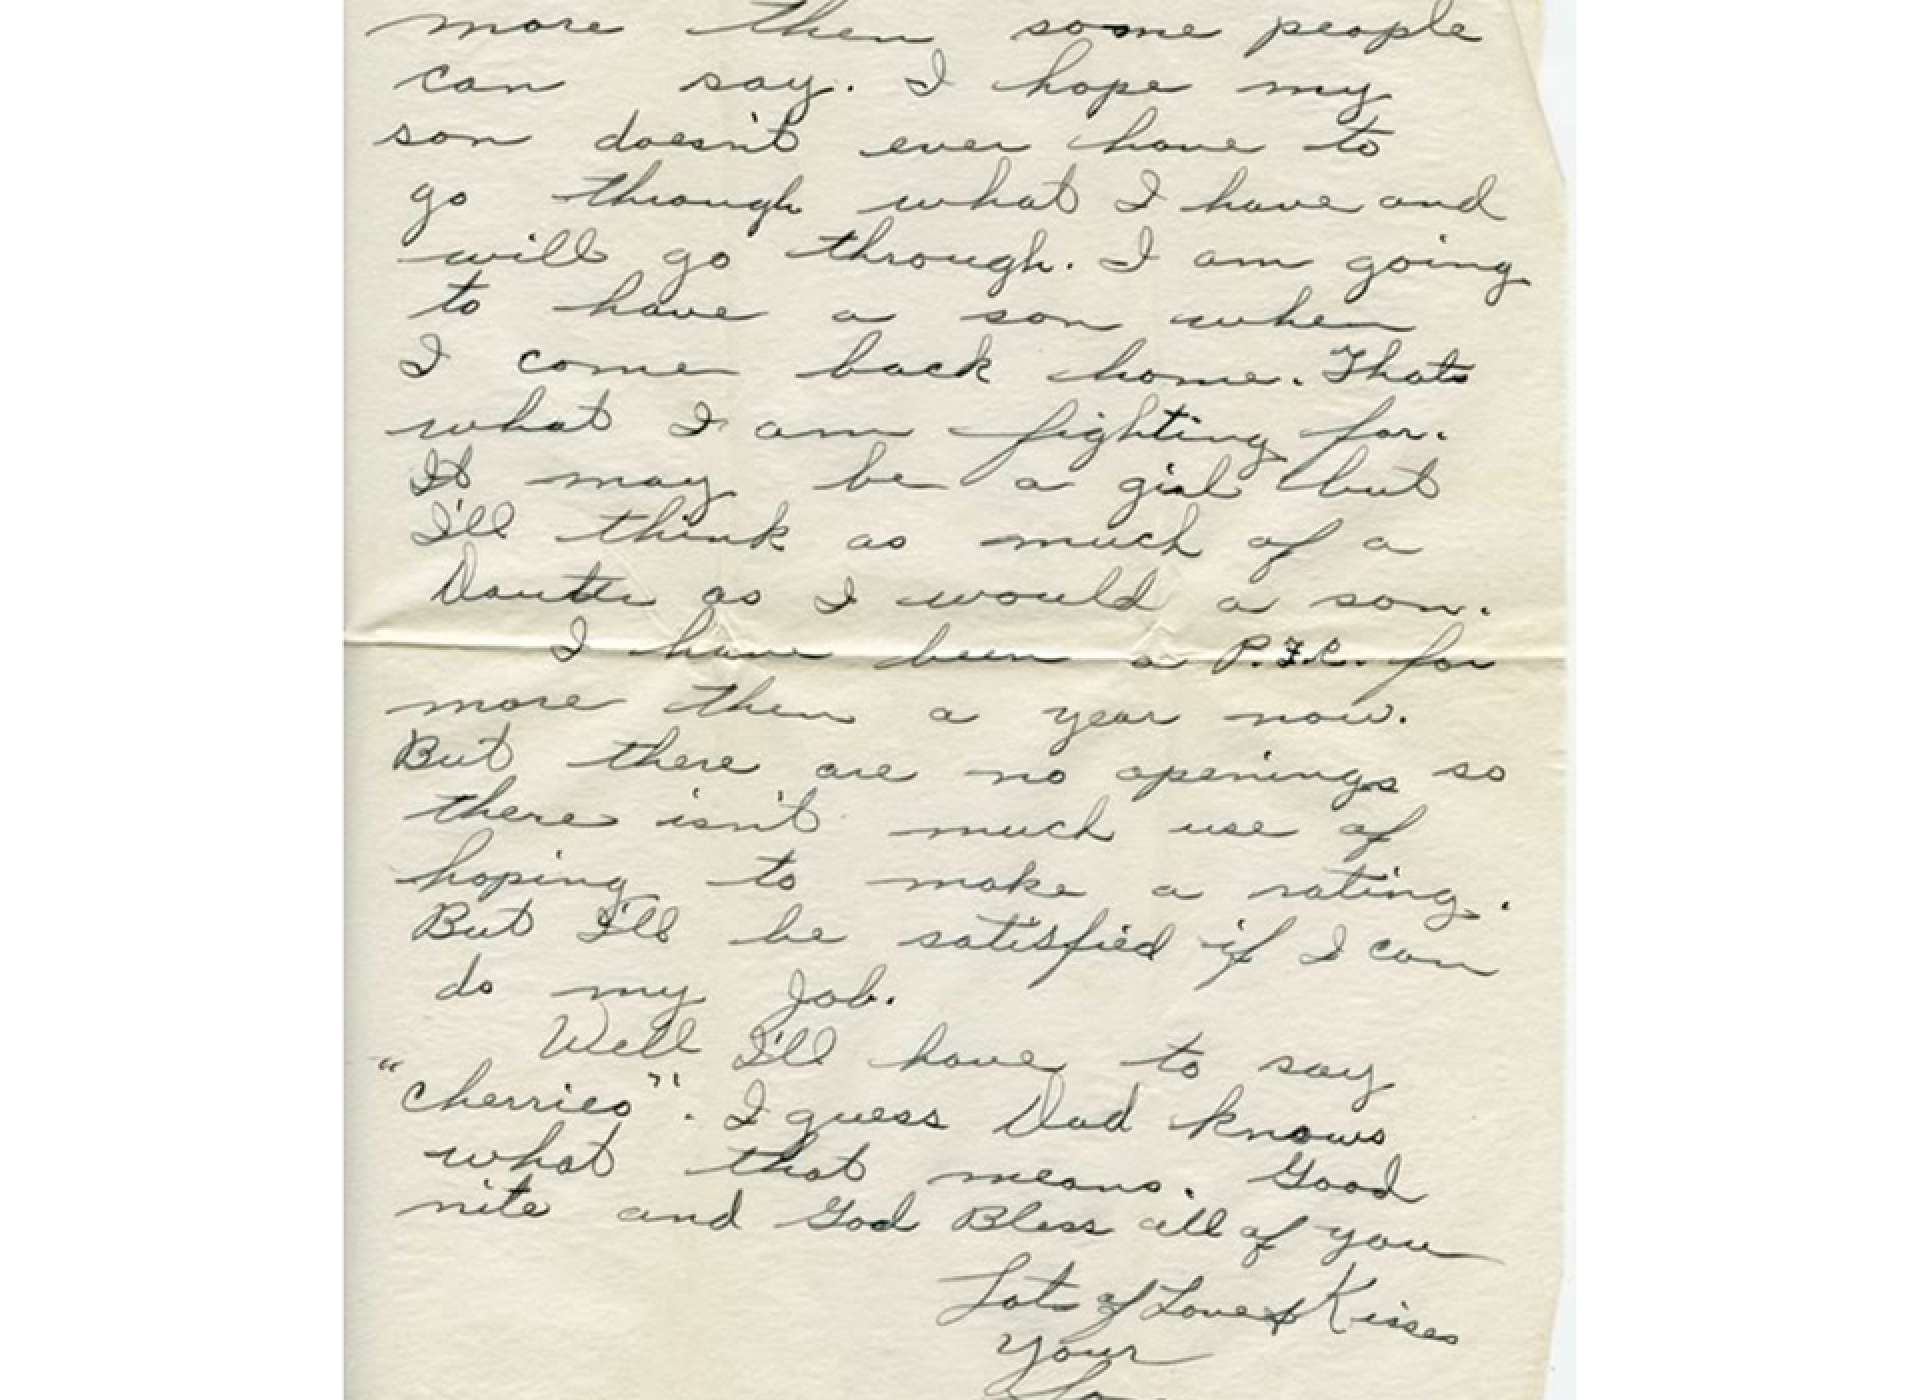 more then some people
can say. I hope my
son doesn't ever have to
go through what I have and
will go through. I am going
to have a son when
I come back home. Thats
what I am fighting for.
It may be a girl but
I'll think as much of a
as I would a son.
I have been a P.F.C. for
more then a year now.
But there are no openings so
there isn't much use of
hoping to make a rating.
But I'll be satisfied if I can
do my Job.
Well I'll have to say
"cherries". I guess Dad knows
what that means. Good
nite and God Bless all of you
Lots of Love & Kisses
Your